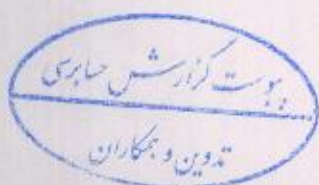 پیوست گزارش حسابرسی
....
تدوین و همکاران